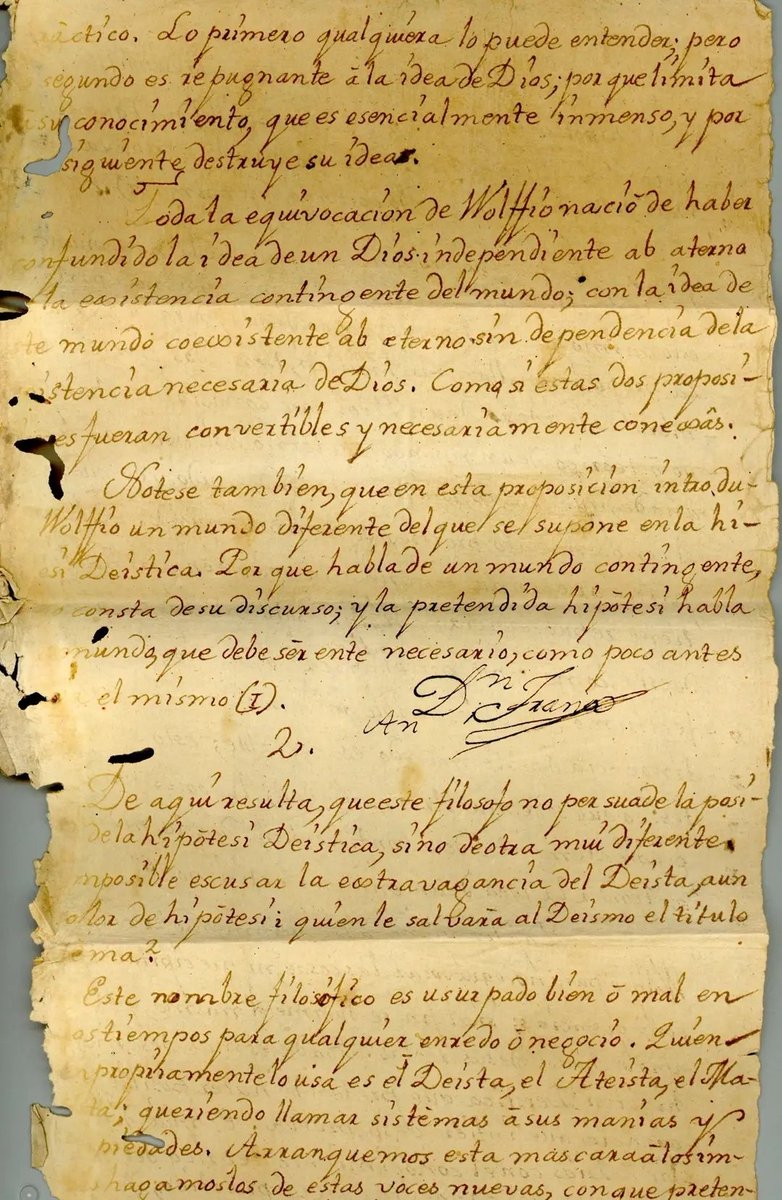 áctico. Lo primero qualquiera lo puede entender; pero
segundo es repugnante ā la idea de Dios; por que límita
su conocimiento, que es esencialmente inmenso, y por
siguiente, destruye su idea.
Toda la equivocacion de Wolffio naciō de haber
nfundido la idea de un Dios independiente ab aterno
la existencia contingente del mundo; con la idea de
te mundo coexistente ab eterno sin dependencia de la
istencia necesaria de Dios. Como si estas dos proposi-
es fueran convertibles y necesariamente conexâs.
Notese tambien, que en esta proposicion introdu-
Wolffio un mundo diferente del que se supone en la hi-
esi Deistica. Por que habla de un mundo contingente,
consta de su discurso; y la pretendida hipōtesi habla
mundo, que debe sēr ente necesario, como poco antes
el mismo (1).
An Dn Fran
2.
De aqui resulta, que este filosofo no persuade la posi-
de la hipōtesi Deistica, sino de otra mui diferente.
mposible escusar la extravagancia del Deista, aun
olor de hipōtesi; quien le salvarā al Deismo el titulo
tema?
Este nombre filosōfico es usurpado bien ō mal en
os tiempos para qualquier enredo ō negocio. Quien
propiamente lo usa es el Deista, el Ateista, el Ma-
ta; queriendo llamar sistēmas ā sus manias y
piedades. Arranquemos esta mascara ā los im-
s hagamoslos de estas voces nuevas, con que preten-